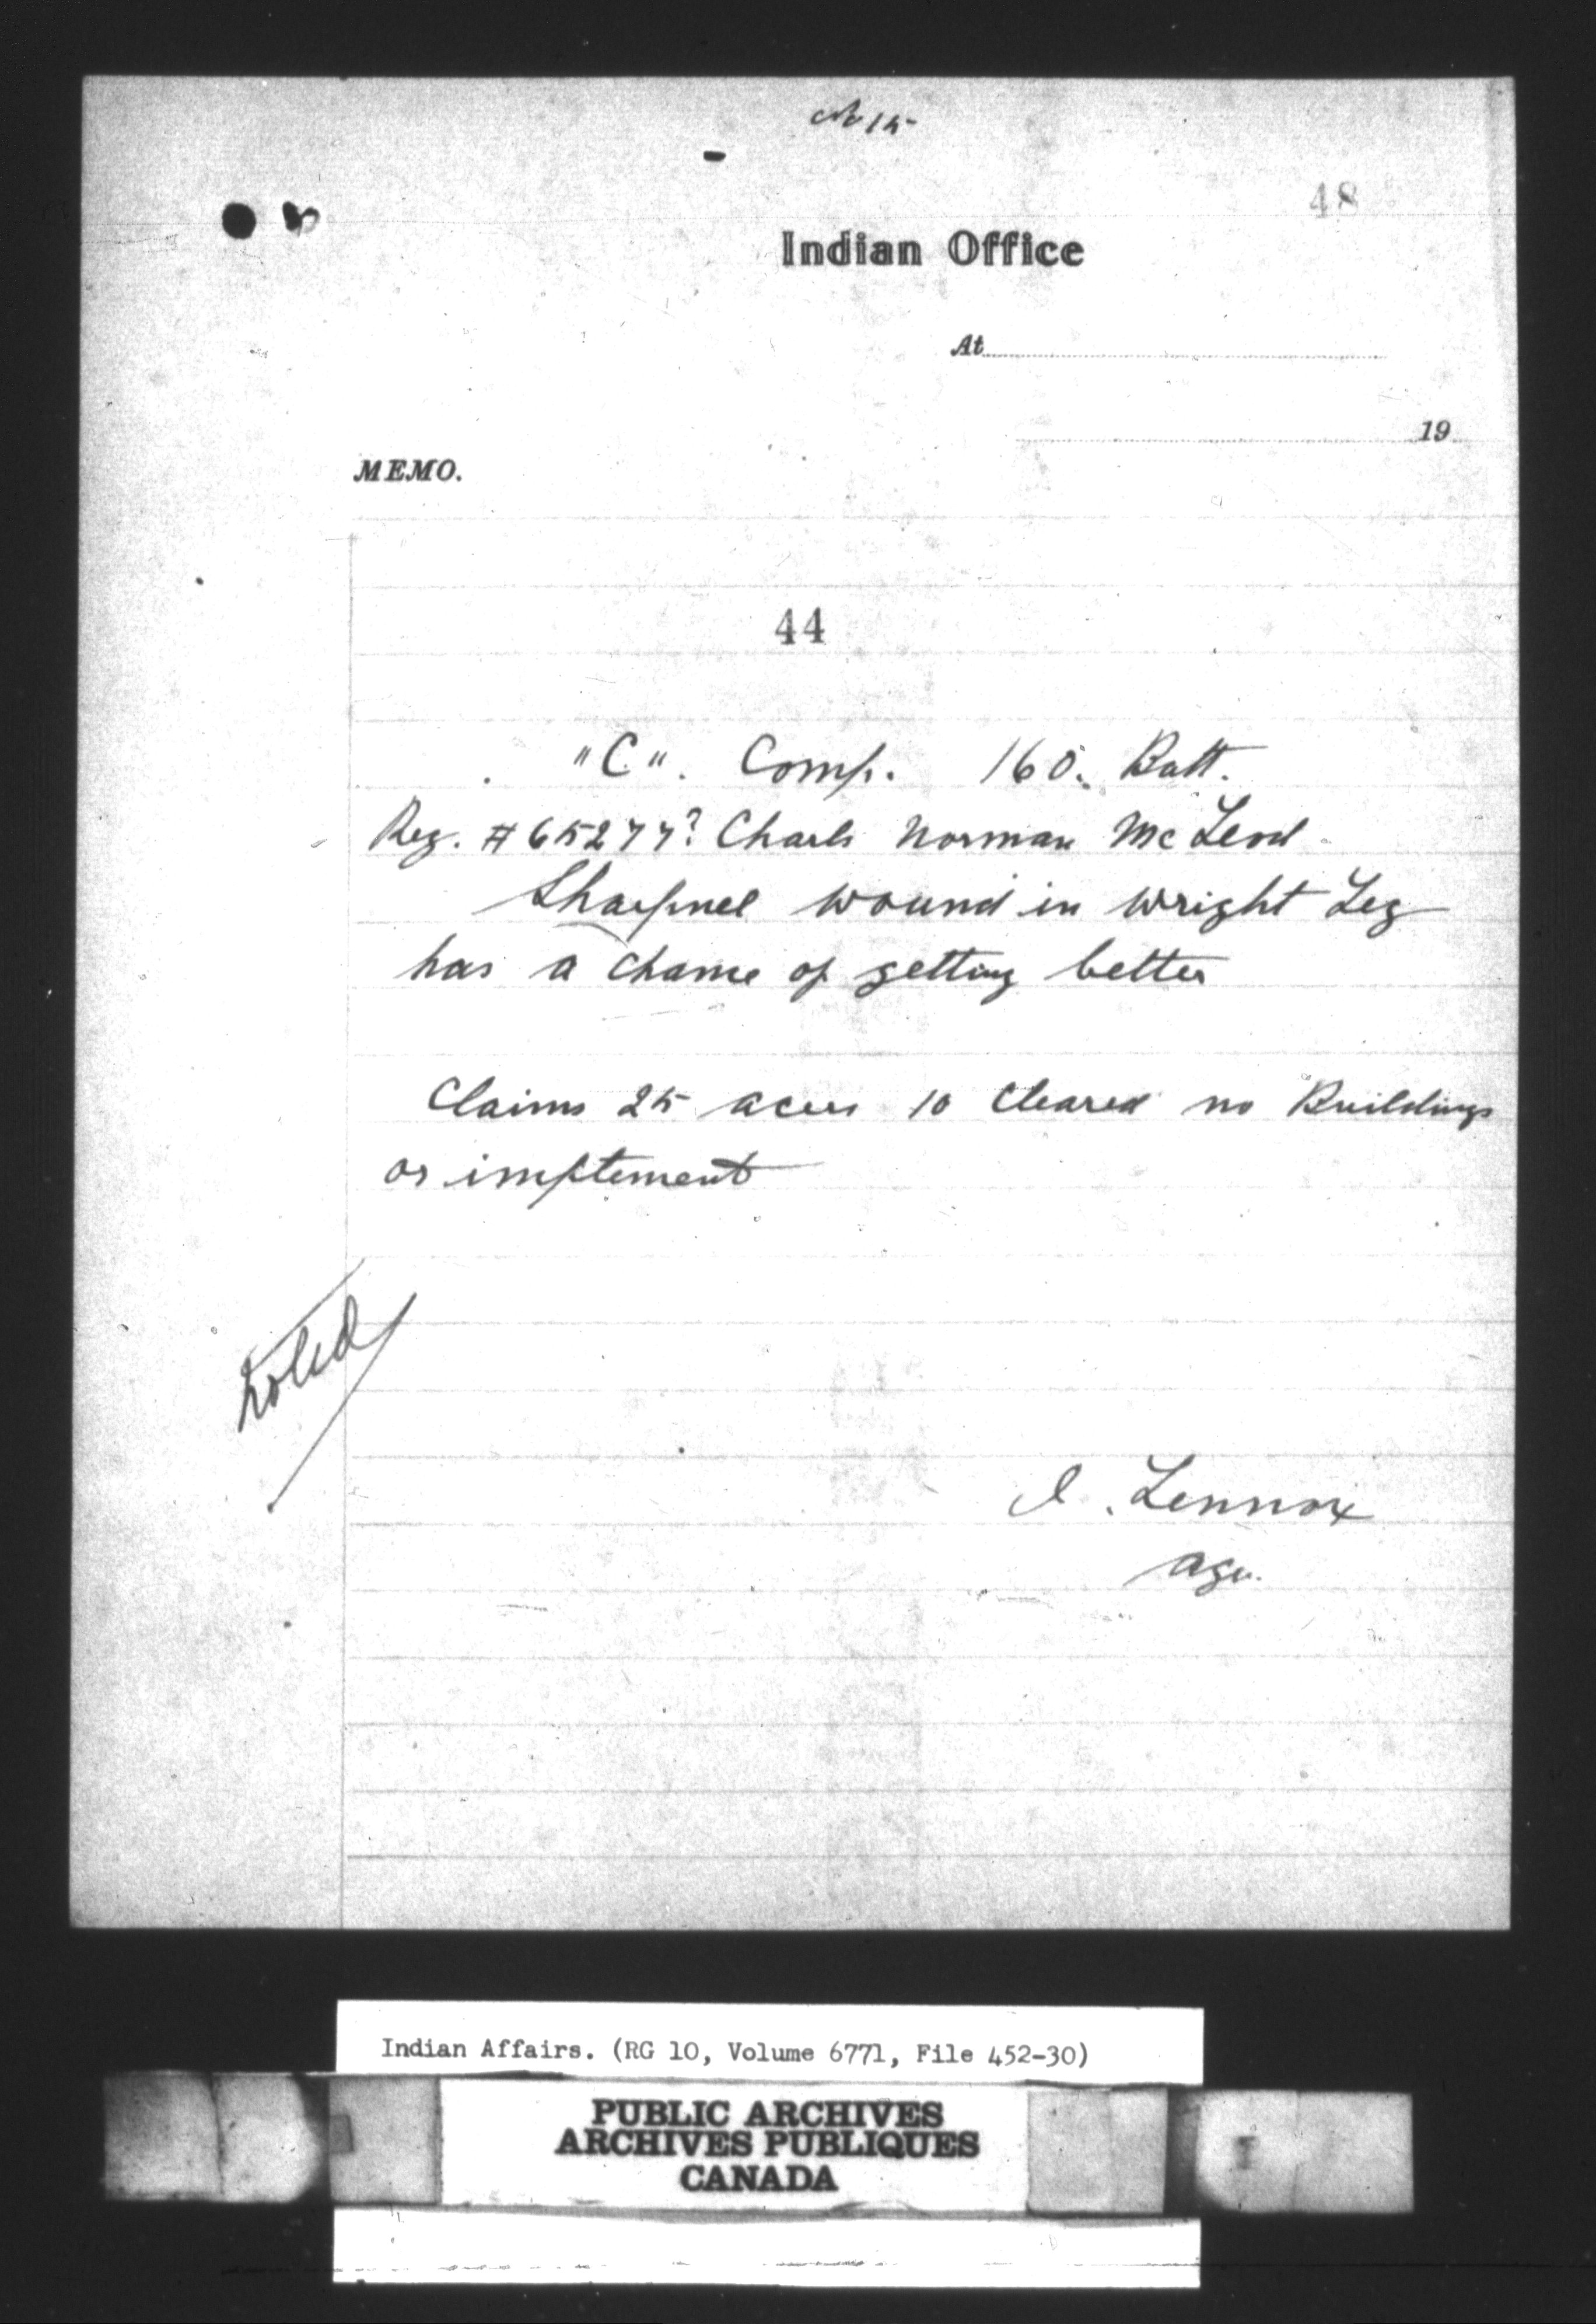 No 15
48
Indian Office
At
19
MEMO.
44
"C". Comp. 160. Batt.
Reg. #65277? Charls Norman McLeod
Sharpnel wound in wright Leg
has a chance of getting better
Claims 25 acers 10 Cleared no Buildings
or implement
noted
I. Lennox
Agn.
Indian Affairs. (RG 10, Volume 6771, File 452-30)
PUBLIC ARCHIVES
ARCHIVES PUBLIQUES
CANADA